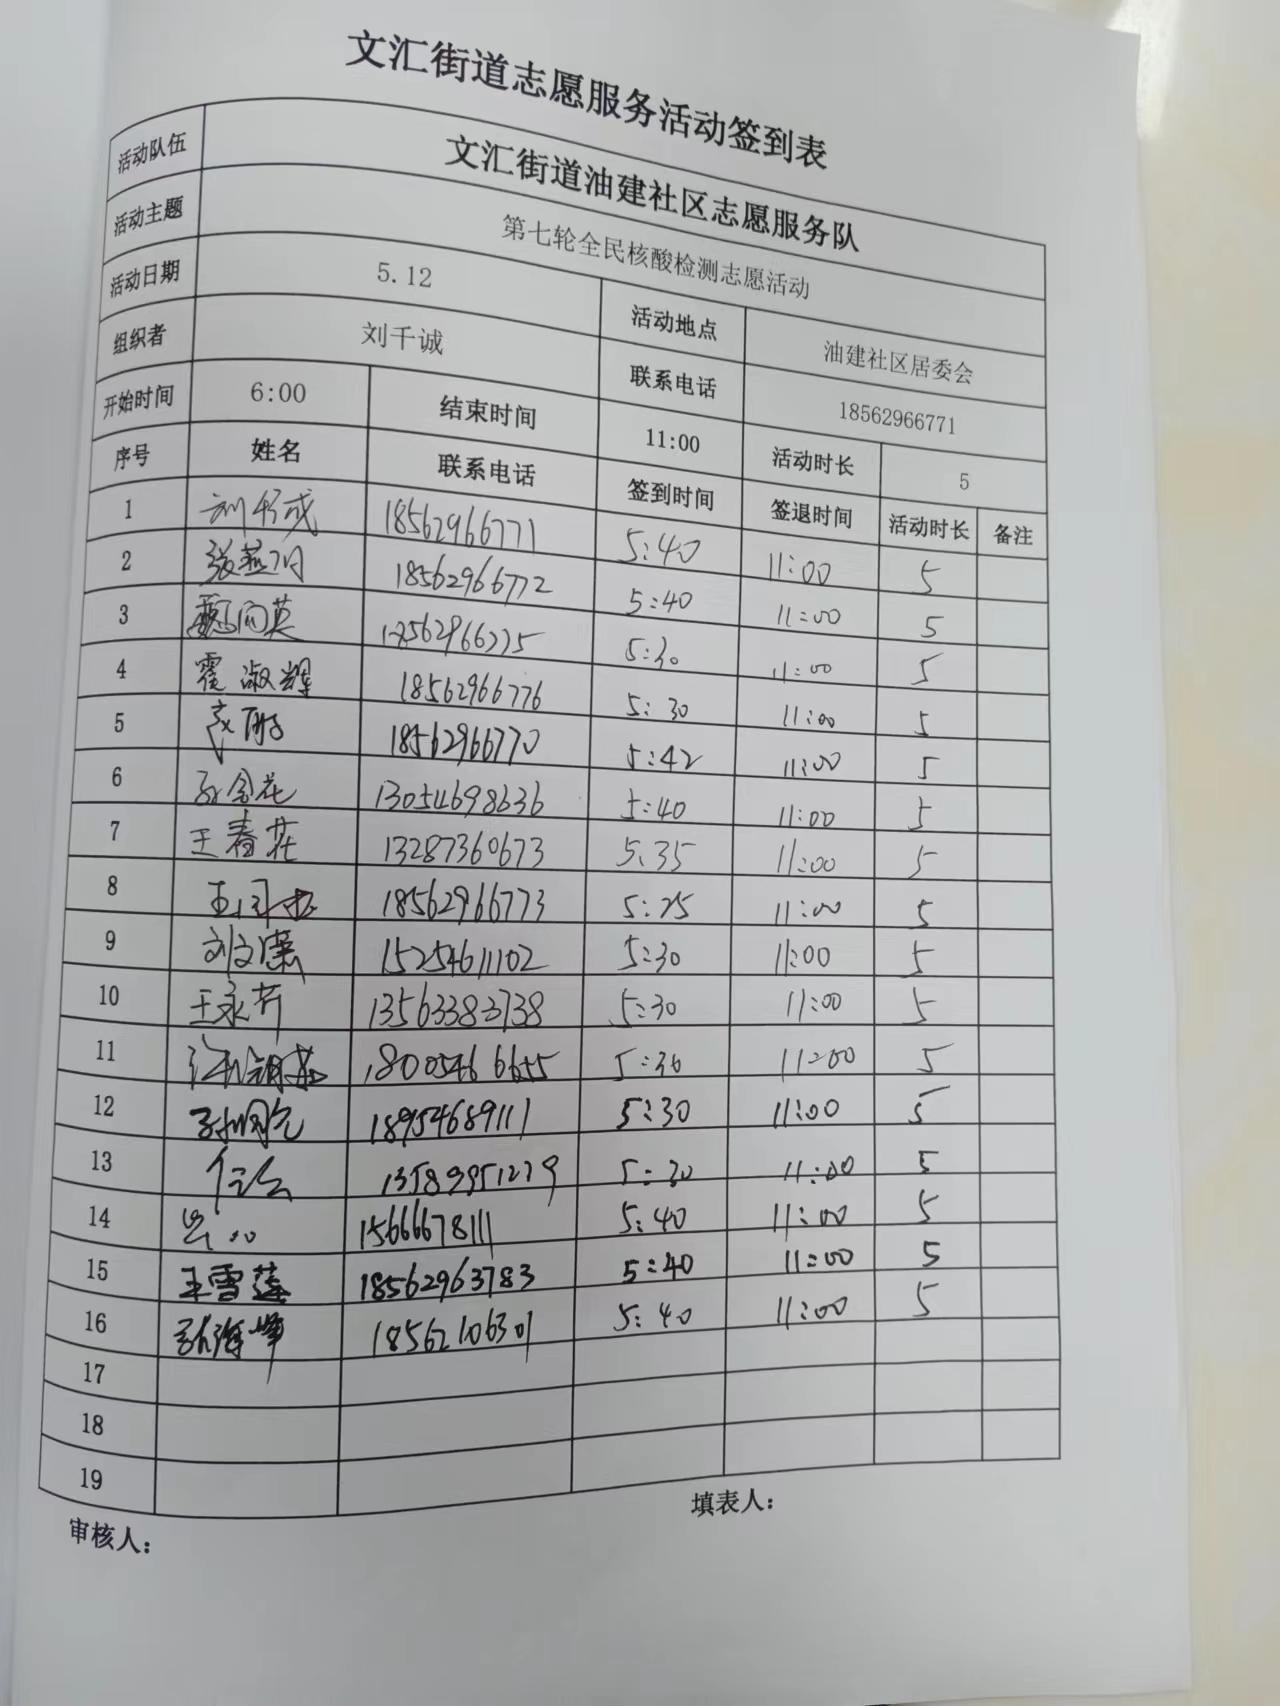 文汇街道志愿服务活动签到表
活动队伍 文汇街道油建社区志愿服务队
活动主题 第七轮全民核酸检测志愿活动
活动日期 5.12 活动地点 油建社区居委会
组织者 刘千诚 联系电话 18562966771
开始时间 6:00 结束时间 11:00 活动时长 5
序号 姓名 联系电话 签到时间 签退时间 活动时长 备注
1 18562966771 5:40 11:00 5
2 18562966772 5:40 11:00 5
3 18562966775 5:30 11:00 5
4 霍淑辉 18562966776 5:30 11:00 5
5 18562966770 5:42 11:00 5
6 孙金花 13054698636 5:40 11:00 5
7 王春花 13287360673 5:35 11:00 5
8 18562966773 5:25 11:00 5
9 刘文 15254611102 5:30 11:00 5
10 王永芹 13563383738 5:30 11:00 5
11 18005466655 5:30 11:00 5
12 孙明 18954689111 5:30 11:00 5
13 13589951279 5:30 11:00 5
14 15666678111 5:40 11:00 5
15 王雪莲 18562963783 5:40 11:00 5
16 18562106301 5:40 11:00 5
17
18
19
审核人: 填表人: